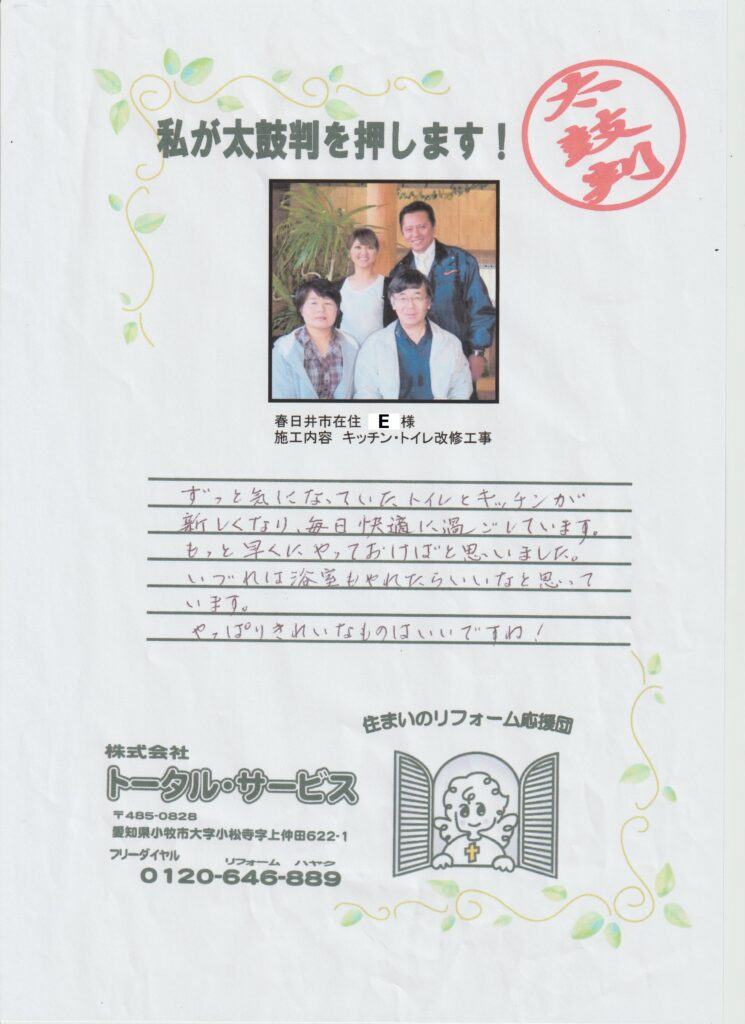 私が太鼓判を押します！
太鼓判
春日井市在住 E 様
施工内容 キッチン・トイレ改修工事
ずっと気になっていた、トイレとキッチンが
新しくなり、毎日快適に過ごしています。
もっと早くにやっておけばと思いました。
いづれは浴室もやれたらいいなと思って
います。
やっぱりきれいなものはいいですね！
住まいのリフォーム応援団
株式会社
トータル・サービス
〒485-0828
愛知県小牧市大字小松寺字上仲田622-1
フリーダイヤル リフォーム ハヤク
0120-646-889